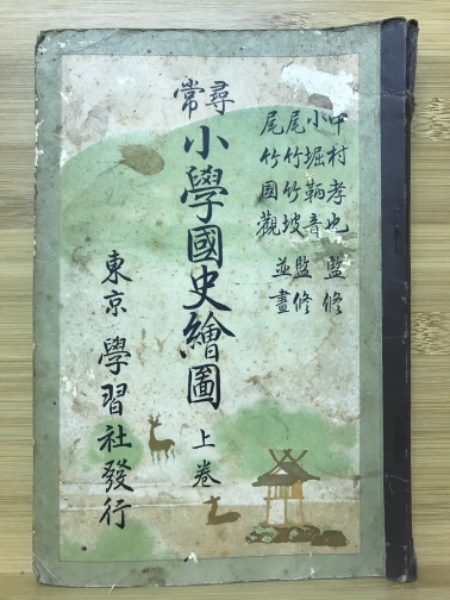 中村孝也 監修
小堀鞆音 監修
尾竹竹坡
尾竹國觀 並畫
尋常
小學國史繪圖 上卷
東京 學習社發行